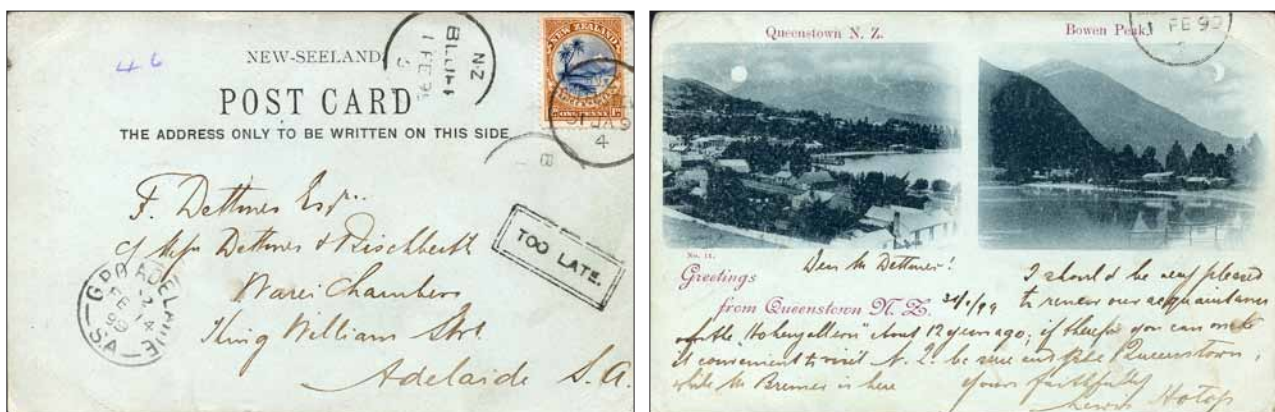 46
NEW-SEELAND
POST CARD
THE ADDRESS ONLY TO BE WRITTEN ON THIS SIDE
NEW ZEALAND
ONE PENNY
N.Z
BLUFF
1 FE 9
4
B
F. Dettmer Esqr.
c/ Mess Dettmer & Rischbieth
Ware Chambers
King William Strt.
Adelaide S. A.
TOO LATE.
G.P.O ADELAIDE
FE 14
99
S.A
Queenstown N. Z.
Bowen Peak.
1 FE 99
No. 11.
Greetings
from Queenstown N. Z.
31/1/99
Dear Mr Dettmer!
I should be very pleased
to renew our acquaintance
of the "Hohenzollern" about 12 years ago; if therefore you can make
it convenient to visit N. Z. be sure and Queenstown,
while Mr Bremer is here
yours faithfully
Lewis Hotop